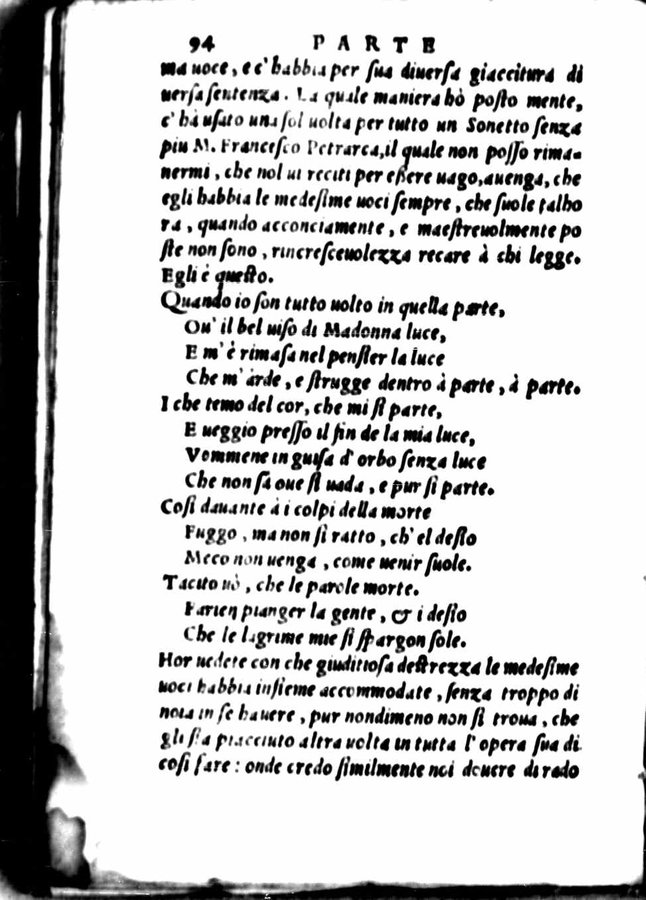 94 PARTE
ma uoce, e c' habbia per sua diuersa giaccitura di
uersa sentenza. La quale maniera hò posto mente,
c' hà usato una sol uolta per tutto un Sonetto senza
piu M. Francesco Petrarca, il quale non posso rima-
nermi, che nol ui reciti per eßere uago, auenga, che
egli habbia le medesime uoci sempre, che suole talho
ra, quando acconciamente, e maestreuolmente po
ste non sono, rincresceuolezza recare à chi legge.
Egli è questo.
Quando io son tutto uolto in quella parte,
Ou' il bel uiso di Madonna luce,
E m' è rimasa nel pensier la luce
Che m' arde, e strugge dentro à parte, à parte.
I che temo del cor, che mi si parte,
E ueggio presso il fin de la mia luce,
Vommene in guisa d' orbo senza luce
Che non sa oue si uada, e pur si parte.
Cosi dauante à i colpi della morte
Fuggo, ma non sì ratto, ch' el desio
Meco non uenga, come uenir suole.
Tacito uò, che le parole morte.
Farien pianger la gente, & i desio
Che le lagrime mie si spargon sole.
Hor uedete con che giuditiosa destrezza le medesime
uoci habbia insieme accommodate, senza troppo di
noia in se hauere, pur nondimeno non si troua, che
gli sia piacciuto altra uolta in tutta l' opera sua di
cosi fare: onde credo similmente noi douere di rado